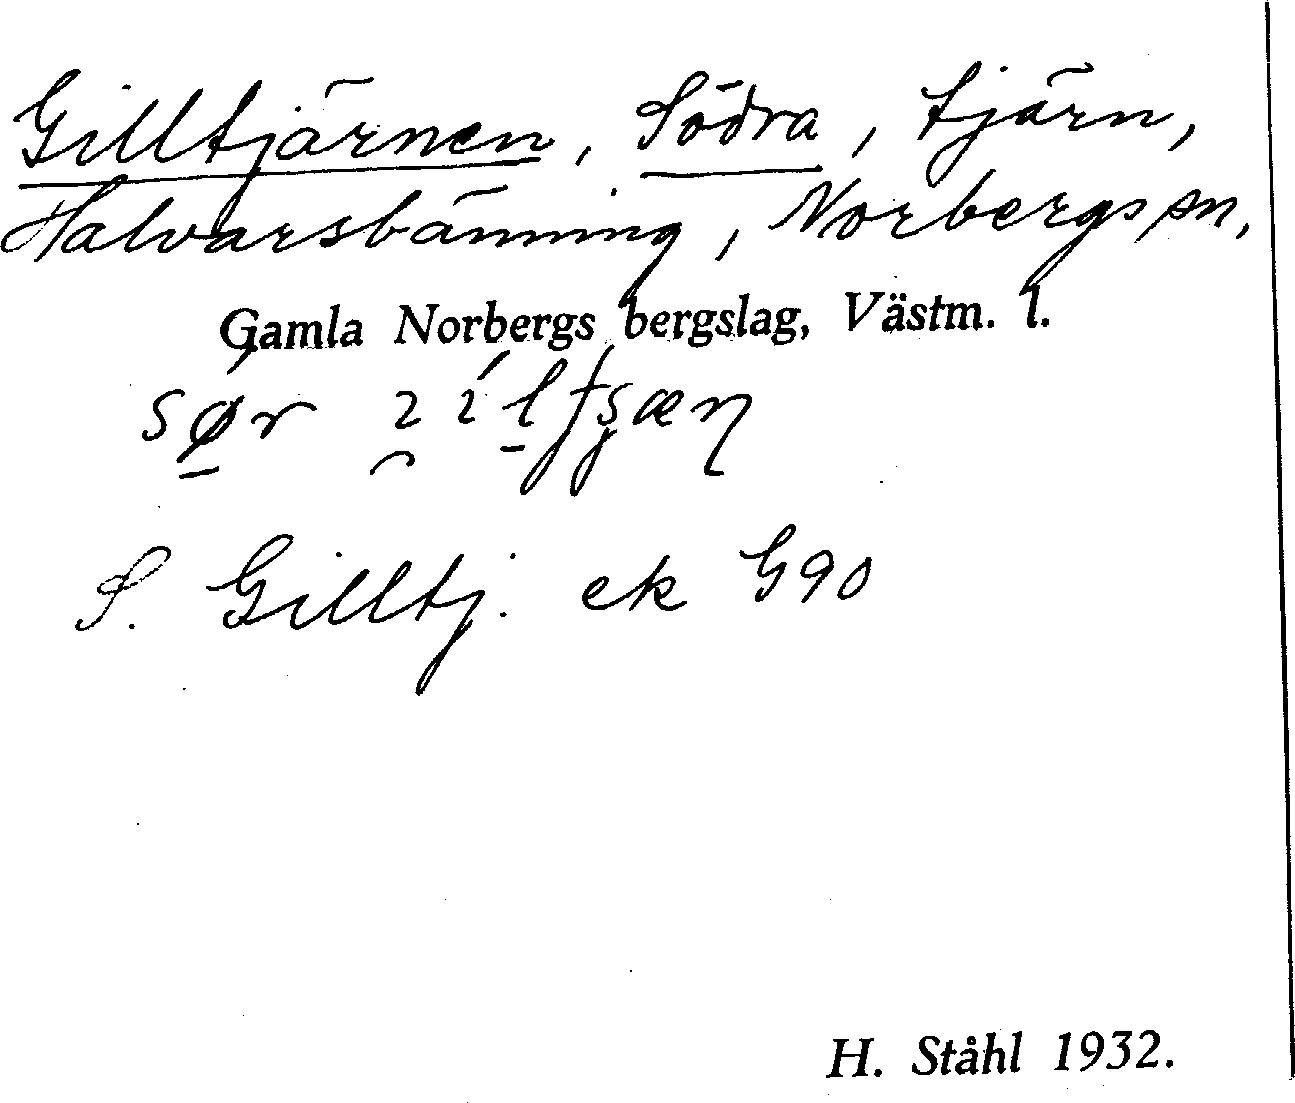 Gilltjärnen, Södra, tjärn,
Halvarsbänning, Norbergs sn,
Gamla Norbergs bergslag, Västm. l.
sør
S. Gilltj. ek G90
H. Ståhl 1932.